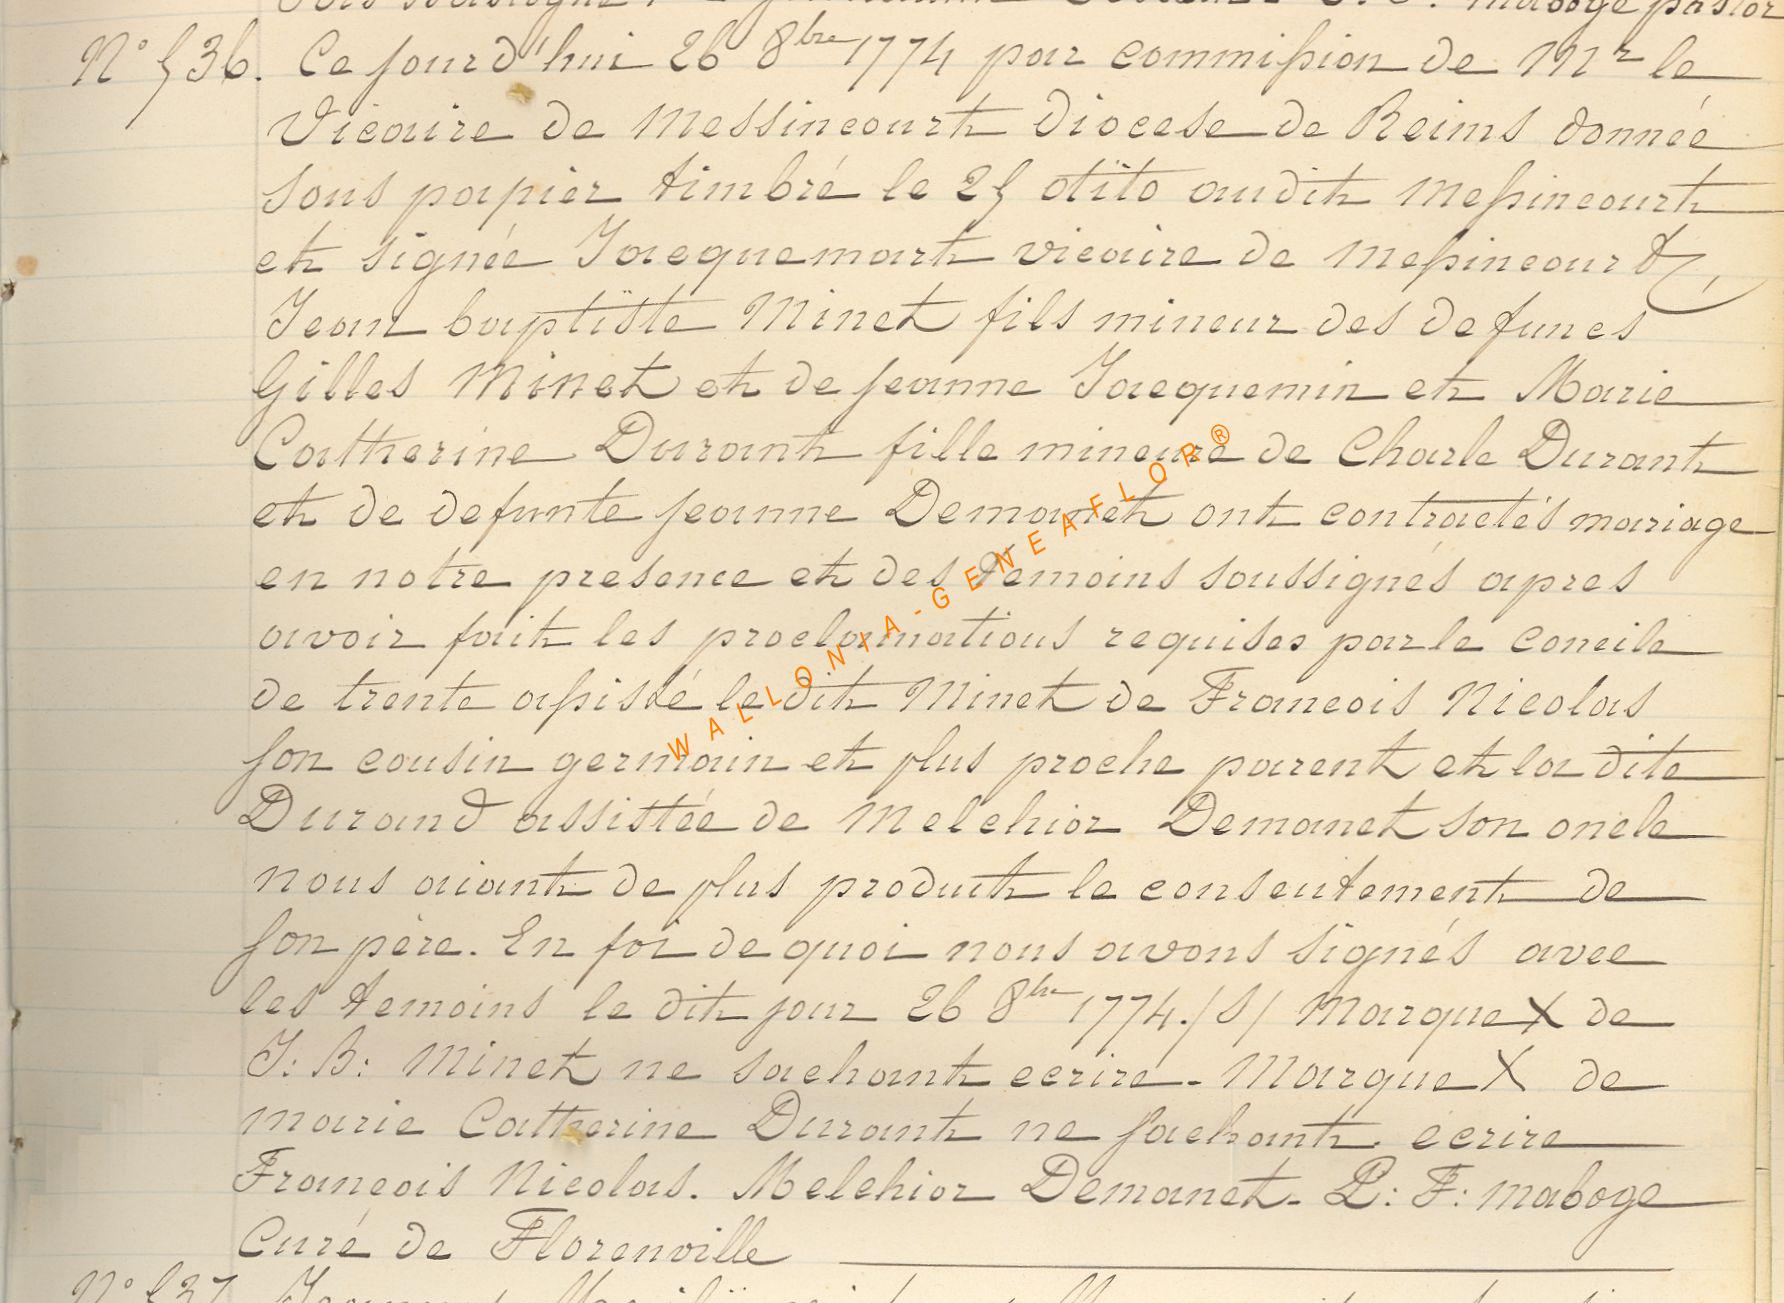 maboge pastor
N° 536. Ce jourd'hui 26 8bre 1774 par commission de Mr le
Vicaire de Messincourt Diocese de Reims donnée
sous papier timbré le 25 dito audit Messincourt
et signée Jacquemart vicaire de Messincourt,
Jean baptiste Minet fils mineur des defuncs
Gilles Minet et de jeanne Jacquemin et Marie
Catherine Durant fille mineure de Charle Durant
et de defunte jeanne Demanet ont contractés mariage
en notre presence et des temoins soussignés apres
avoir fait les proclamations requises par le concile
de trente assisté le dit Minet de Francois Nicolas
son cousin germain et plus proche parent et la dite
Durand assistée de Melchior Demanet son oncle
nous aiant de plus produit le consentement de
son père. En foi de quoi nous avons signés avec
les temoins le dit jour 26 8bre 1774. /S/ Marque X de
J: B: Minet ne sachant ecrire - Marque X de
marie Catherine Durant ne sachant écrire
François Nicolas. Melchior Demanet - P: F: maboge
Curé de Florenville
N° 537
WALLONIA-GENEAFLOR®